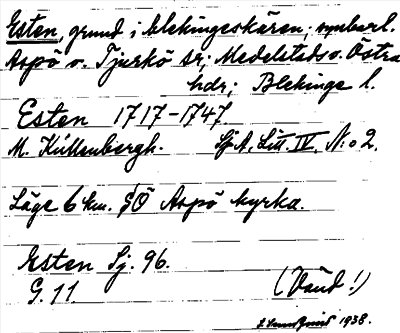 Esten, grund i blekingeskären; numbarl.
Aspö o. Tjurkö sr; Medelstads o. Östra
hdr; Blekinge l.
Esten 1717-1747.
M. Küllenbergh. SjA, Litt. IV, N:o 2.
Läge 6 km. SÖ Aspö kyrka.
Esten Sj. 96.
G. 11. (Vänd!)
1938.